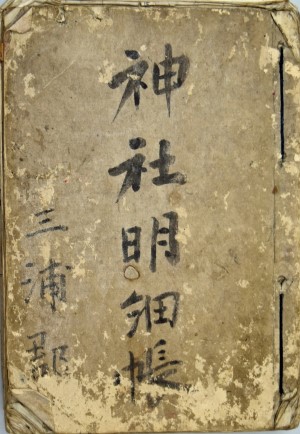 神社明細帳
三浦郡